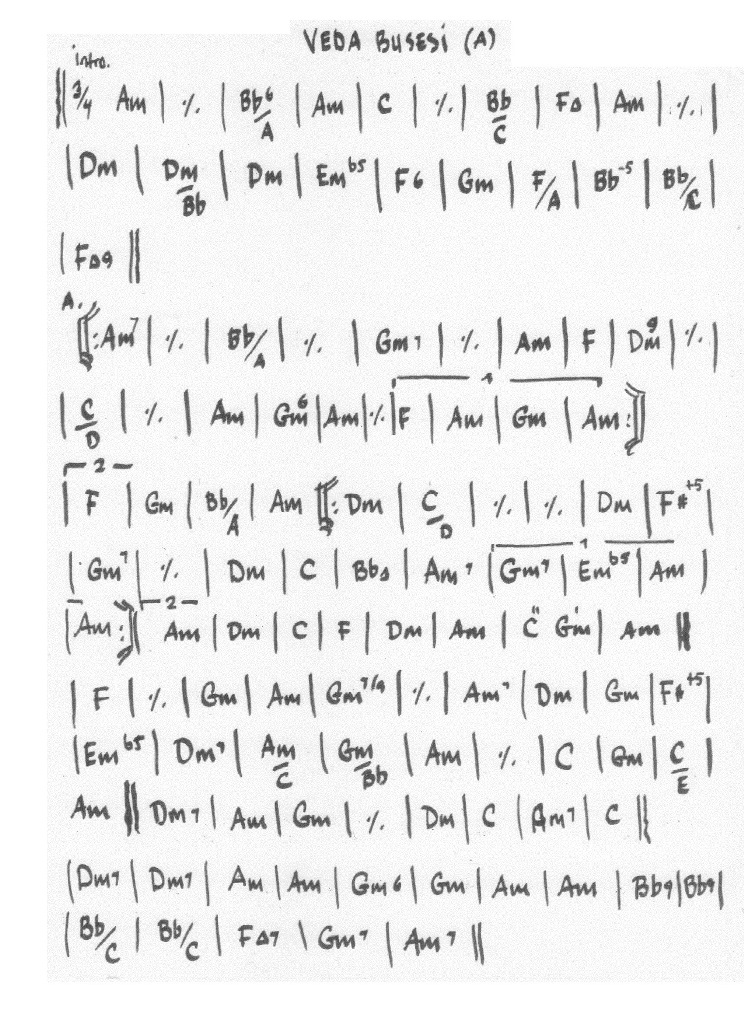 VEDA BUSESİ (A)
intro.
3/4 Am | ٪ | Bb6/A | Am | C | ٪ | Bb/C | FΔ | Am | ٪ |
| Dm | Dm/Bb | Dm | Em b5 | F6 | Gm | F/A | Bb-5 | Bb/C |
| FΔ9 ||
A.
[: Am7 | ٪ | Bb/A | ٪ | Gm7 | ٪ | Am | F | Dm9 | ٪ |
1
| C/D | ٪ | Am | Gm6 | Am | ٪ | F | Am | Gm | Am :]
2
| F | Gm | Bb/A | Am [: Dm | C/D | ٪ | ٪ | Dm | F#+5 |
1
| Gm7 | ٪ | Dm | C | BbΔ | Am7 | Gm7 | Em b5 | Am |
2
| Am :] Am | Dm | C | F | Dm | Am | C" Gm' | Am ||
| F | ٪ | Gm | Am | Gm7/9 | ٪ | Am7 | Dm | Gm | F#+5 |
| Em b5 | Dm7 | Am/C | Gm/Bb | Am | ٪ | C | Gm | C/E |
Am || Dm7 | Am | Gm | ٪ | Dm | C | Am7 | C ||
| Dm7 | Dm7 | Am | Am | Gm6 | Gm | Am | Am | Bb9 | Bb9 |
| Bb/C | Bb/C | FΔ7 | Gm7 | Am7 ||